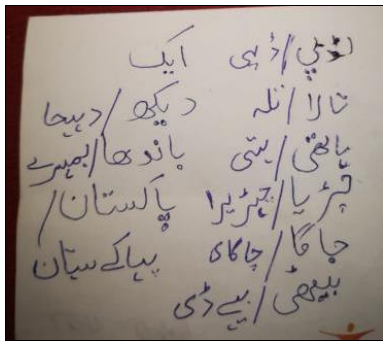 ٹوپی/ڈہی ایک
تالا/تلہ دیکھ/دہیحا
ہاتھی/یتی باندھا/بمہرے
چڑیا/چڑیرا پاکستان/
جاگا/چاکای پیاکے ستان
بیٹھی/بیے ڈی